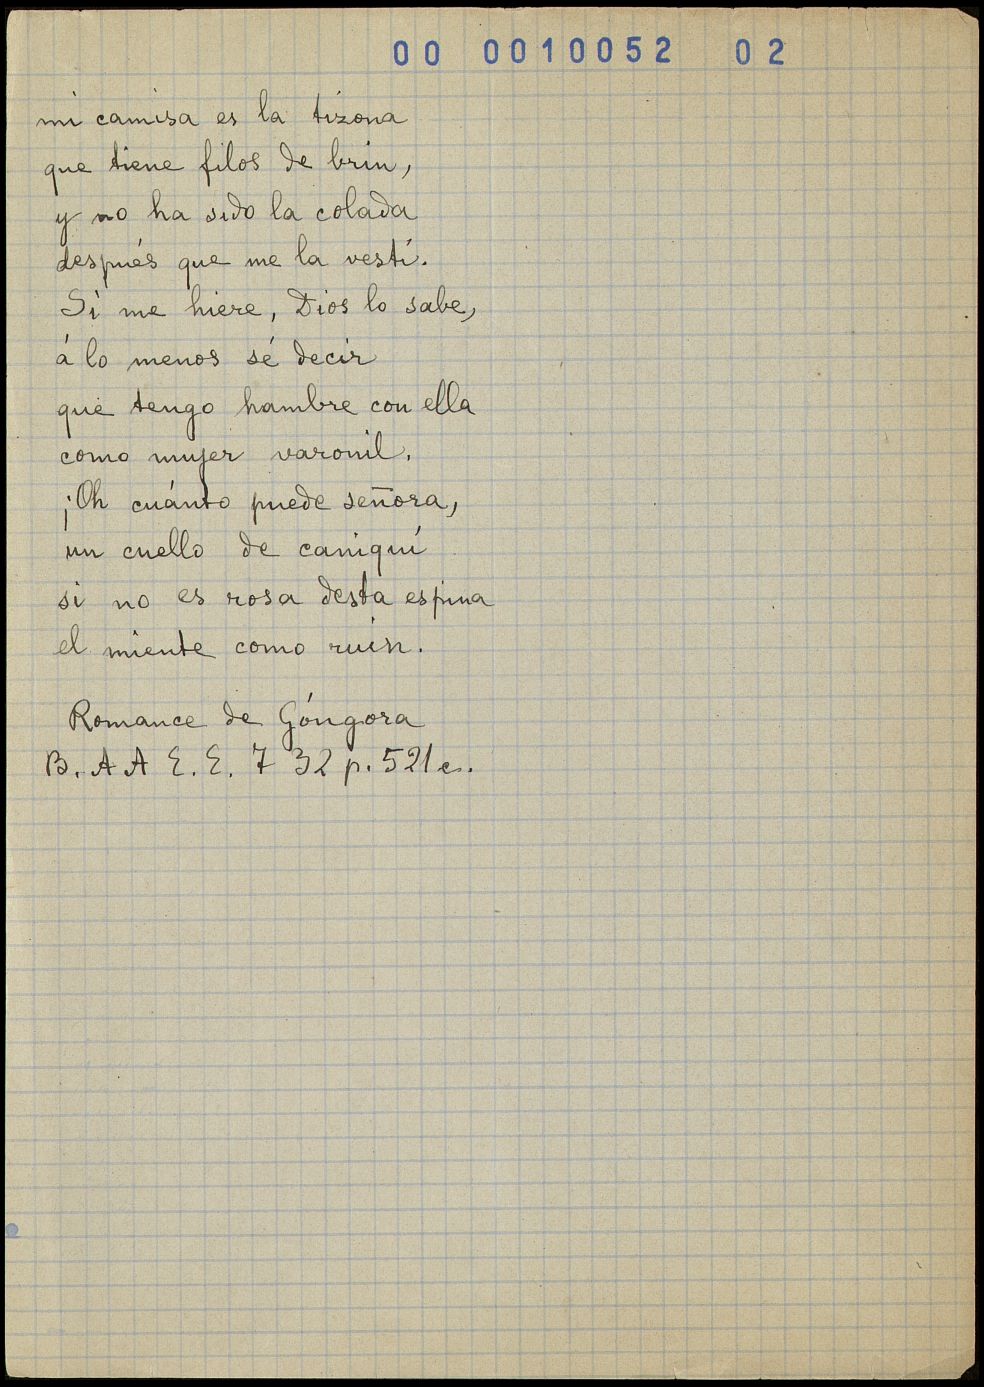 00 0010052 02
mi camisa es la tizona
que tiene filos de brin,
y no ha sido la colada
después que me la vestí.
Si me hiere, Dios lo sabe,
á lo menos sé decir
que tengo hambre con ella
como mujer varonil.
¡Oh cuánto puede señora,
un cuello de caniquí
si no es rosa desta espina
el miente como ruin.
Romance de Góngora
B. A A E. E. T 32 p. 521 c.